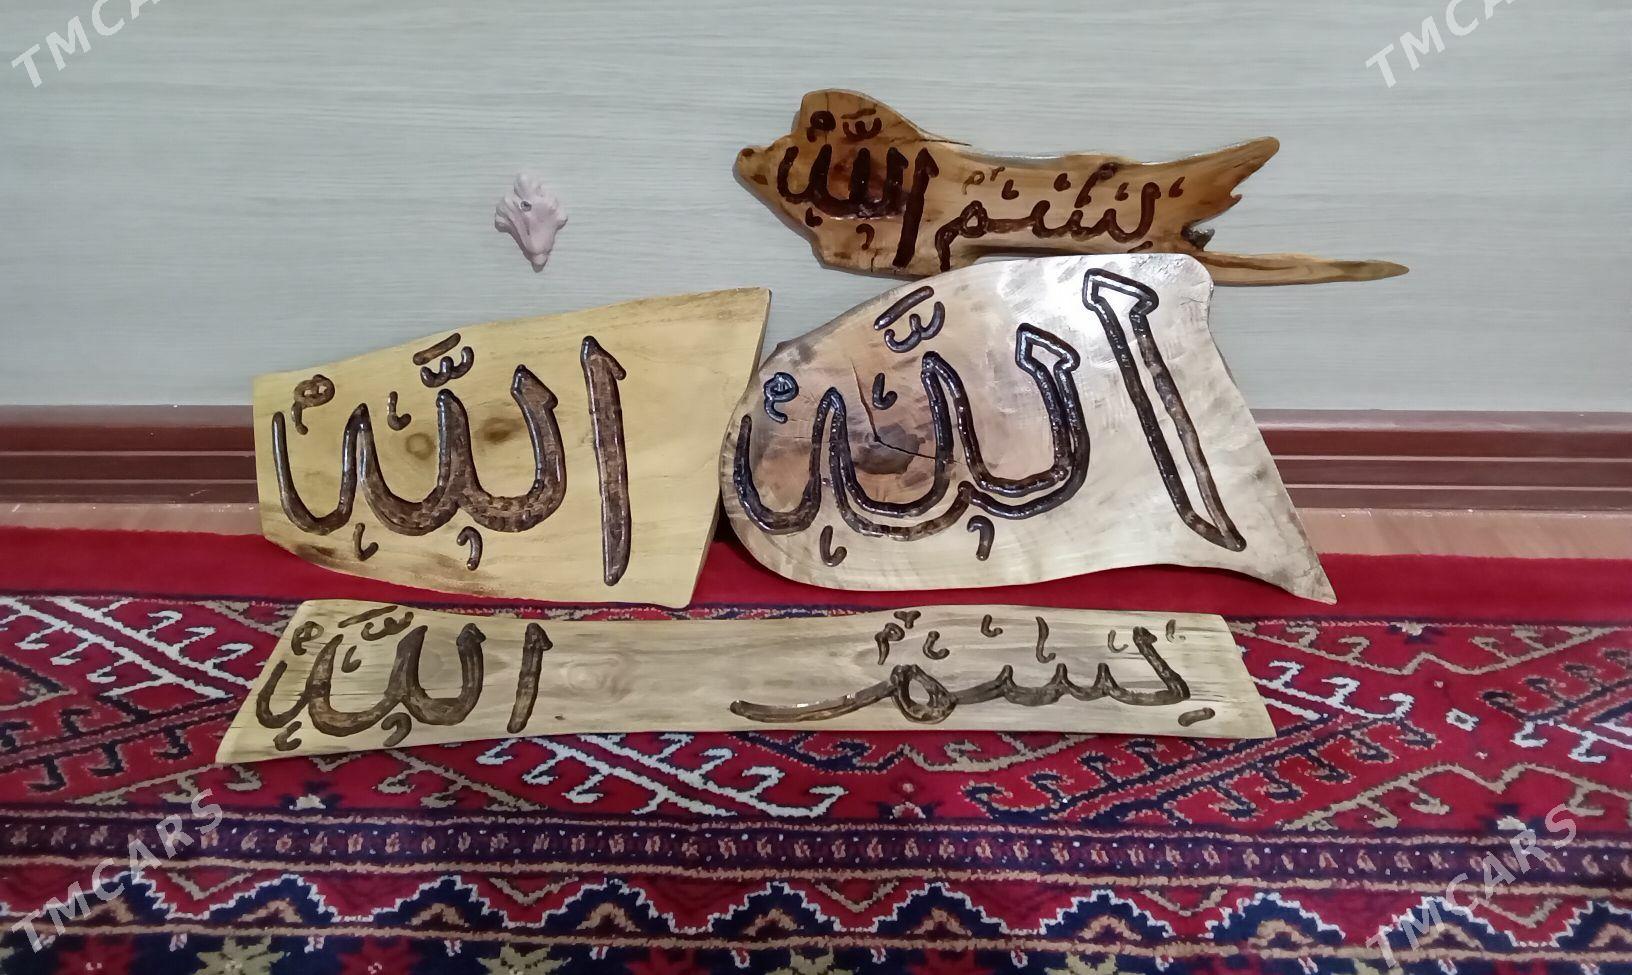 TMCARS
TMCARS
بِسْمِ اللّٰهِ
اللّٰهِ
اللّٰهِ
بِسْمِ اللّٰهِ
TMCARS
TMCARS